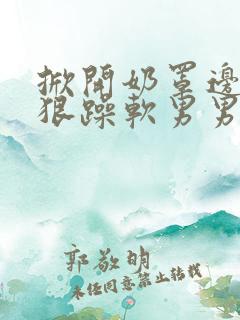 掀開奶罩邊
狠躁軟男男
郭敬明
未经同意禁止转载